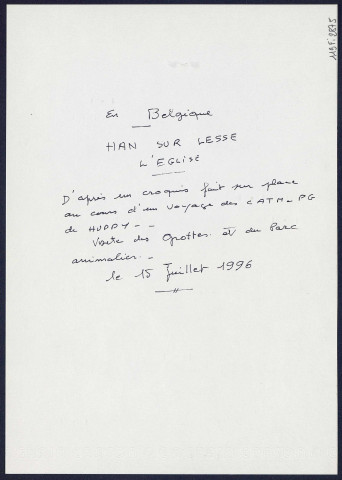 En Belgique
HAN SUR LESSE
L'EGLISE
D'après un croquis fait sur place
au cours d'un voyage des CATM_PG
de HUPPY - -
Visite des Grottes et du Parc
animalier. -
le 15 Juillet 1996